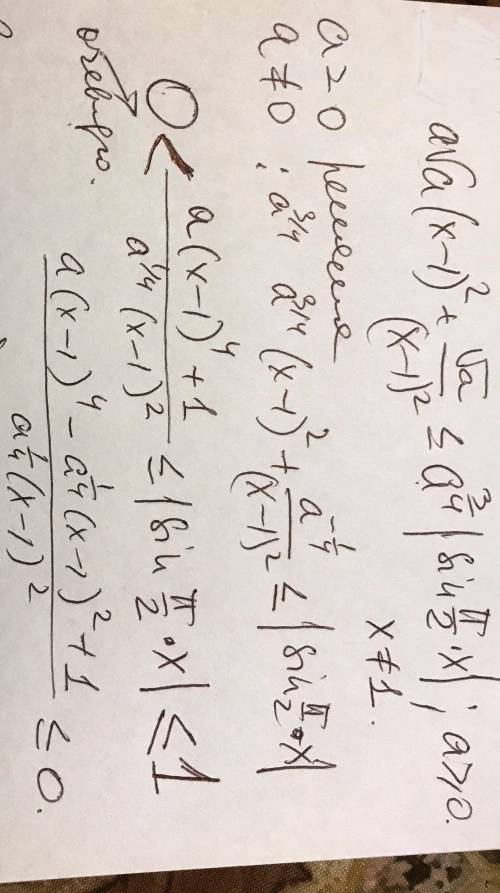 a√a(x-1)² + √a/(x-1)² ≤ a^(3/4) |sin π/2·x|; a≥0.
x≠1.
a=0 решения
a≠0 ; a^(3/4) a^(3/4) (x-1)² + a^(-1/4)/(x-1)² ≤ |sin π/2·x|
0 < (a(x-1)⁴+1)/(a^(1/4)(x-1)²) ≤ |sin π/2·x| ≤ 1
очевидно.
(a(x-1)⁴ - a^(1/4)(x-1)² + 1)/(a^(1/4)(x-1)²) ≤ 0.